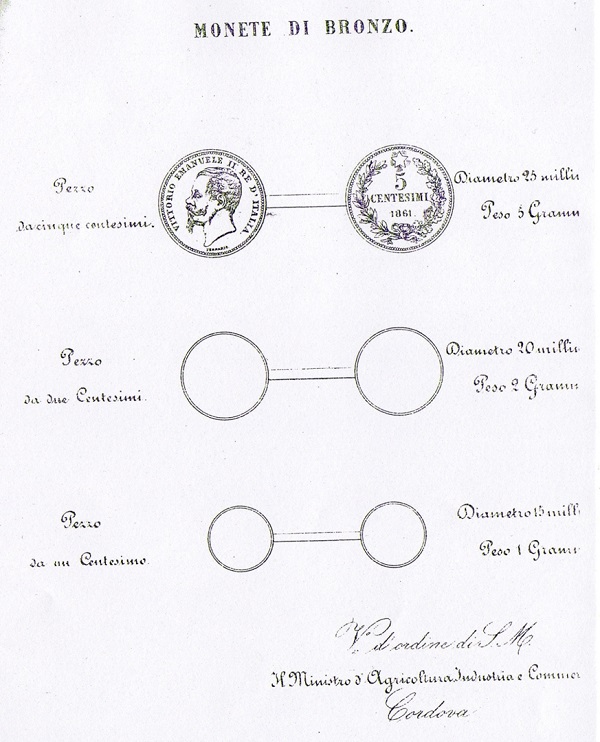 MONETE DI BRONZO.
Pezzo
da cinque centesimi.
VITTORIO EMANUELE II RE D'ITALIA
FERRARIS
5
CENTESIMI
1861
Diametro 25 millii
Peso 5 Gramn
Pezzo
da due Centesimi.
Diametro 20 millii
Peso 2 Gramn
Pezzo
da un Centesimo.
Diametro 15 mill
Peso 1 Gramn
V. d'ordine di S. M.
Il Ministro d'Agricoltura, Industria e Commer
Cordova